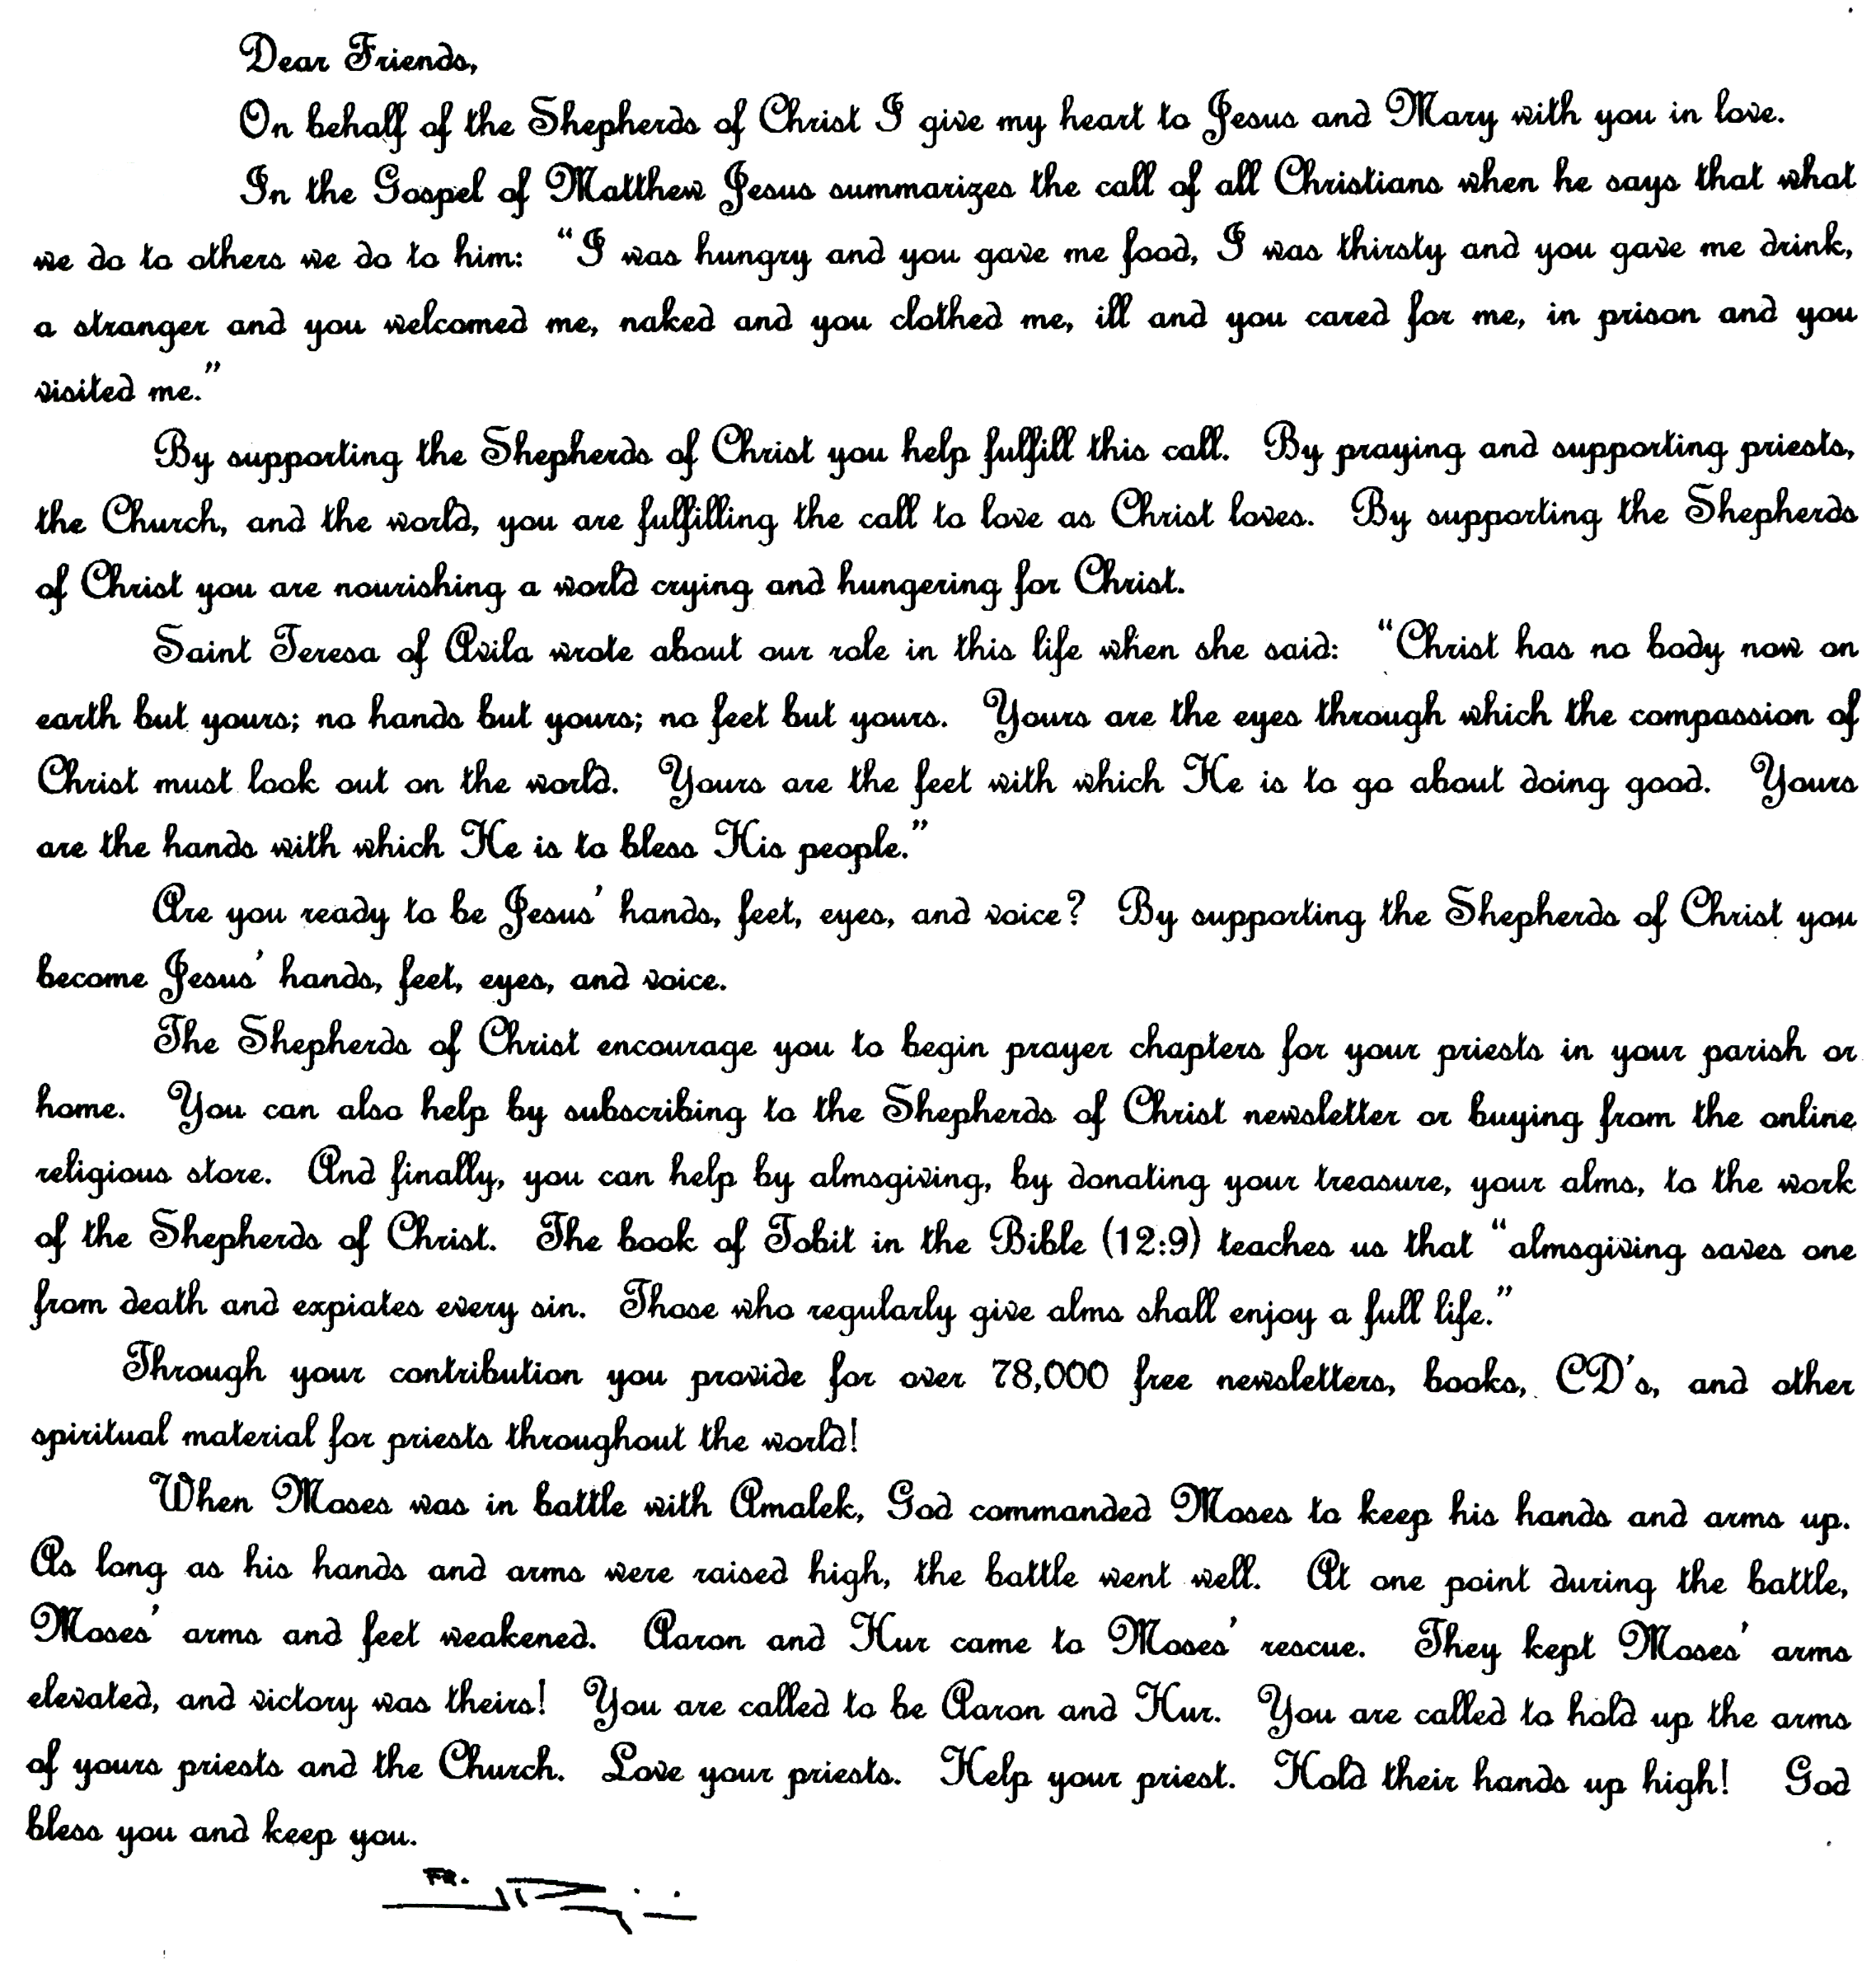 Dear Friends,
On behalf of the Shepherds of Christ I give my heart to Jesus and Mary with you in love.
In the Gospel of Matthew Jesus summarizes the call of all Christians when he says that what
we do to others we do to him: "I was hungry and you gave me food, I was thirsty and you gave me drink,
a stranger and you welcomed me, naked and you clothed me, ill and you cared for me, in prison and you
visited me."
By supporting the Shepherds of Christ you help fulfill this call. By praying and supporting priests,
the Church, and the world, you are fulfilling the call to love as Christ loves. By supporting the Shepherds
of Christ you are nourishing a world crying and hungering for Christ.
Saint Teresa of Avila wrote about our role in this life when she said: "Christ has no body now on
earth but yours; no hands but yours; no feet but yours. Yours are the eyes through which the compassion of
Christ must look out on the world. Yours are the feet with which He is to go about doing good. Yours
are the hands with which He is to bless His people."
Are you ready to be Jesus' hands, feet, eyes, and voice? By supporting the Shepherds of Christ you
become Jesus' hands, feet, eyes, and voice.
The Shepherds of Christ encourage you to begin prayer chapters for your priests in your parish or
home. You can also help by subscribing to the Shepherds of Christ newsletter or buying from the online
religious store. And finally, you can help by almsgiving, by donating your treasure, your alms, to the work
of the Shepherds of Christ. The book of Tobit in the Bible (12:9) teaches us that "almsgiving saves one
from death and expiates every sin. Those who regularly give alms shall enjoy a full life."
Through your contribution you provide for over 78,000 free newsletters, books, CD's, and other
spiritual material for priests throughout the world!
When Moses was in battle with Amalek, God commanded Moses to keep his hands and arms up.
As long as his hands and arms were raised high, the battle went well. At one point during the battle,
Moses' arms and feet weakened. Aaron and Hur came to Moses' rescue. They kept Moses' arms
elevated, and victory was theirs! You are called to be Aaron and Hur. You are called to hold up the arms
of yours priests and the Church. Love your priests. Help your priest. Hold their hands up high! God
bless you and keep you.
FR.